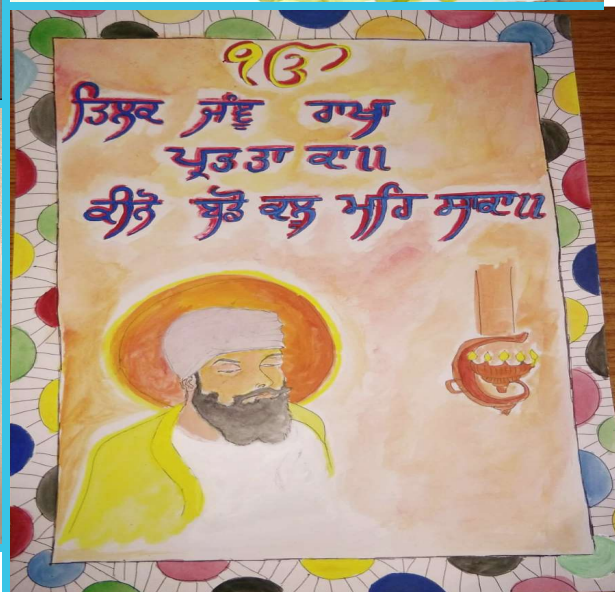 ੴ
ਤਿਲਕ ਜੰਞੂ ਰਾਖਾ
ਪ੍ਰਭ ਤਾ ਕਾ॥
ਕੀਨੋ ਬਡੋ ਕਲੂ ਮਹਿ ਸਾਕਾ॥